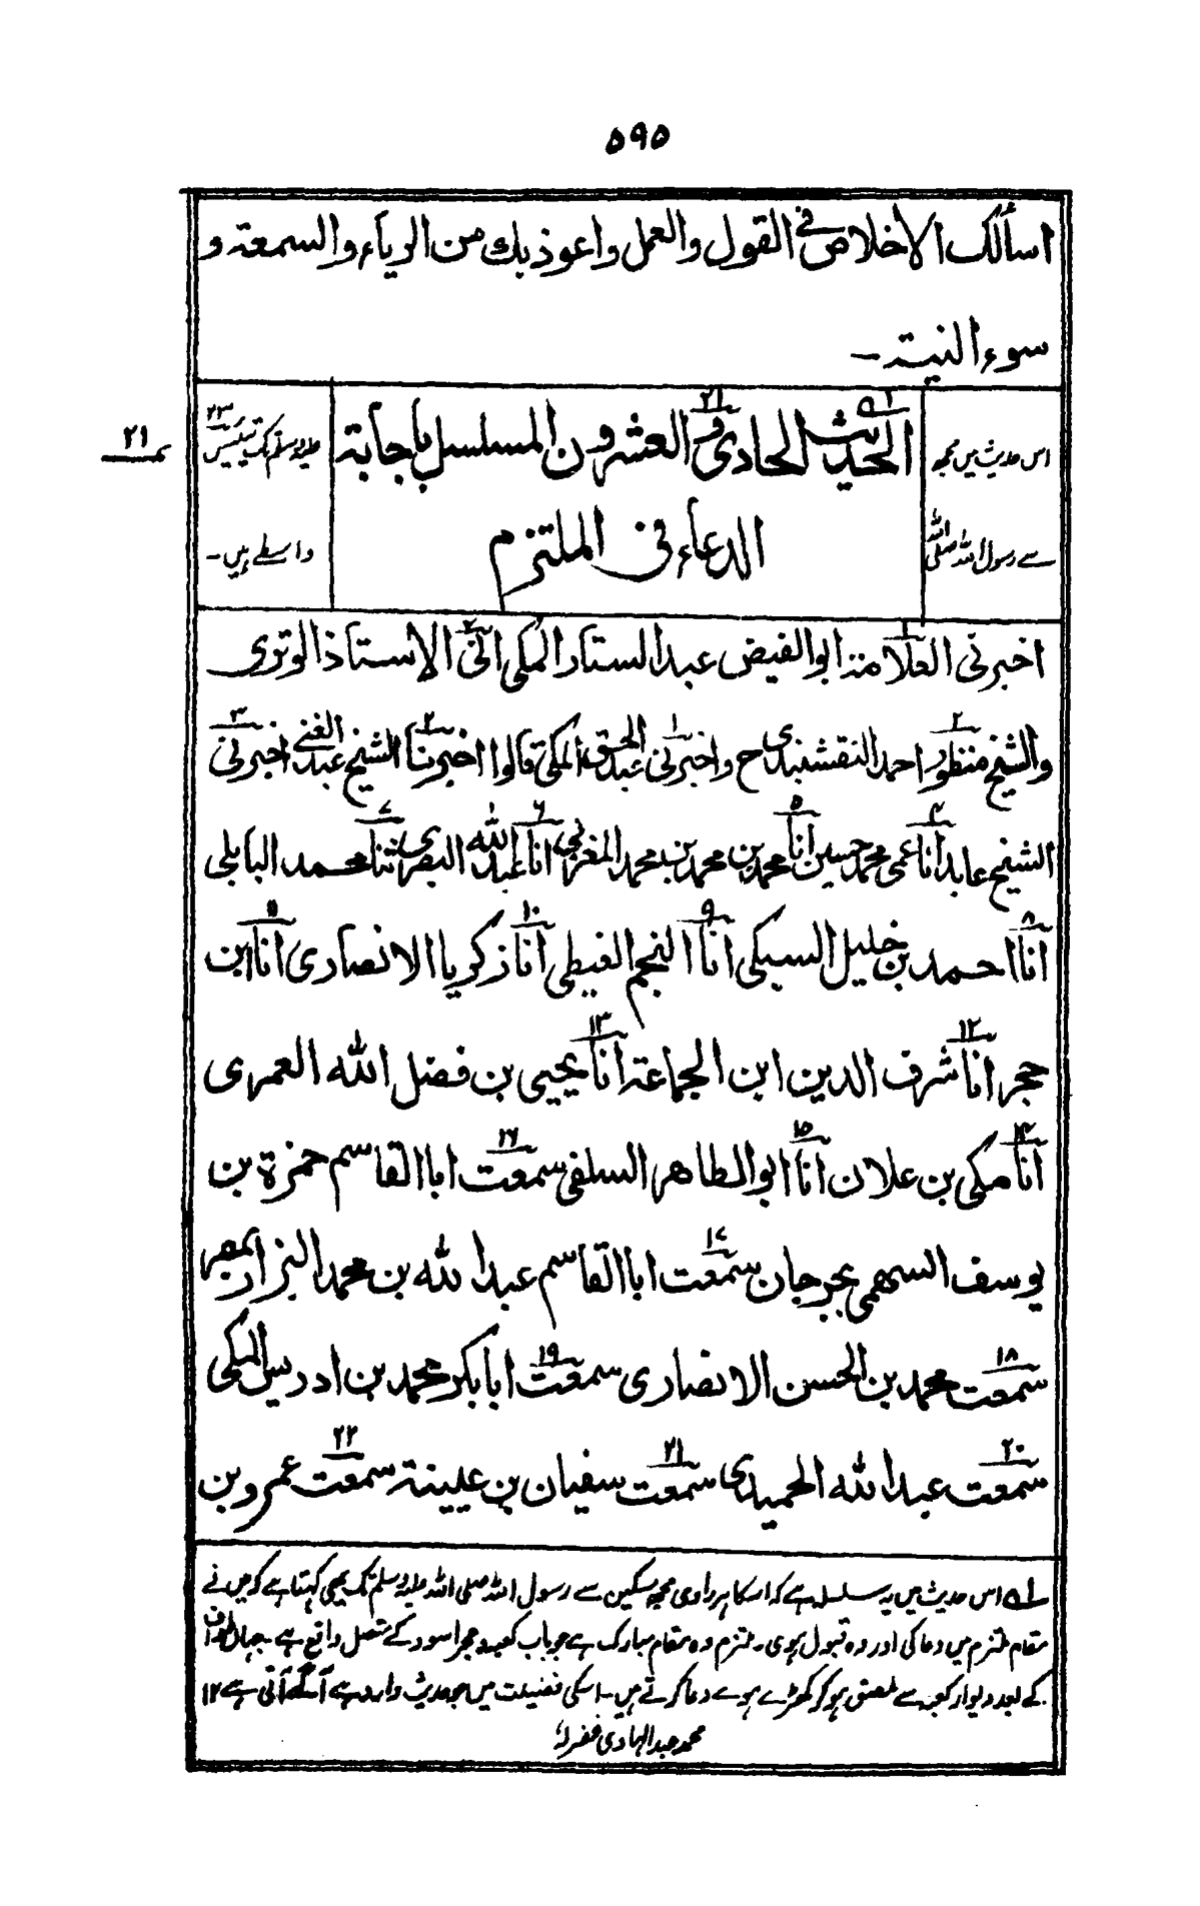 ٥٩٥
اسألك الاخلاص فى القول والعمل واعوذ بك من الرياء والسمعة و
سوء النية -
اس حدیث میں مجھ
سے رسول اللہ صلی اللہ
الحديث الحادى والعشرون المسلسل باجابة
الدعاء فى الملتزم
علیہ وسلم تک تیئیس ٢٣
واسطے ہیں -
نمبر ٢١
اخبرنى العلامة ابو الفيض عبد الستار المكى انى الاستاذ الوترى
والشيخ منظور احمد النقشبندى ح واخبرنى عبد الحق المكى قالوا اخبرنا الشيخ عبد الغنى اخبرنى
الشيخ عابد انا عمى محمد حسين انا محمد بن محمد بن محمد المغربى انا عبد الله البصرى ثنا محمد البابلى
انا احمد بن خليل السبكى انا النجم الغيطى انا زكريا الانصارى انا ابن
حجر انا شرف الدين ابن الجماعة انا يحيى بن فضل الله العمرى
انا مكى بن علان انا ابو الطاهر السلفى سمعت ابا القاسم حمزة بن
يوسف السهمى بجرجان سمعت ابا القاسم عبد الله بن محمد البزار بمصر
سمعت محمد بن الحسن الانصارى سمعت ابا بكر محمد بن ادريس المكى
سمعت عبد الله الحميدى سمعت سفيان بن عيينة سمعت عمرو بن
١ه اس حدیث میں یہ سلسلہ ہے کہ اسکا ہر راوی مجھ مسکین سے رسول اللہ صلی اللہ علیہ وسلم تک یہی کہتا ہے کہ میں نے
مقام ملتزم میں دعا کی اور وہ قبول ہوی۔ ملتزم وہ مقام مبارک ہے جو باب کعبہ و حجر اسود کے متصل واقع ہے۔ جہاں طواف
کے بعد دیوار کعبہ سے ملصق ہو کر کھڑے ہوے دعا کرتے ہیں۔ اسکی فضیلت میں جو حدیث وارد ہے آگے آتی ہے ١٢
محمد عبد الہادی غفر لہ